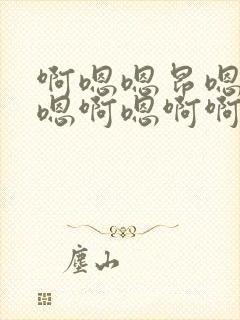 啊嗯嗯昂嗯
嗯啊嗯啊啊
尘山